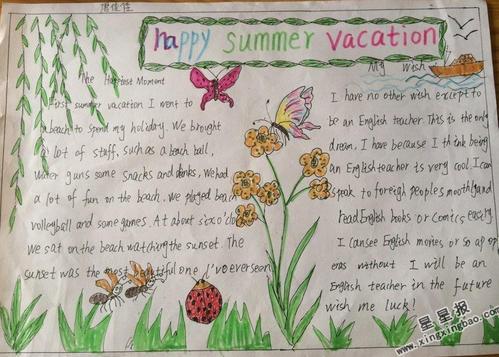 happy summer vacation
The Happiest Moment
First summer vacation I went to
a beach to spend my holiday. We brought
a lot of staff, such as a beach ball,
water guns some snacks and drinks. We had
a lot of fun on the beach. We played beach
volleyball and some games. At about six o'clo
we sat on the beach watching the sunset. The
sunset was the most beautiful one I've ever seen
My wish
I have no other wish except to
be an English teacher. This is the only
dream. I have because I think being
an English teacher is very cool. I can
speak to foreign people smoothly and
read English books or comics easily.
I can see English movies, or soap op
eras without I will be an
English teacher in the future
wish me luck!
星星报
www.xingxingbao.com